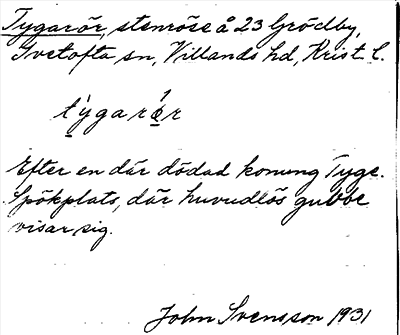 Tygarör, stenröse å 23 Grödby,
Ivetofta sn, Villands hd, Krist. l.
týgarǿr
Efter en där dödad konung Tyge.
Spökplats, där huvudlös gubbe
visar sig.
John Svensson 1931